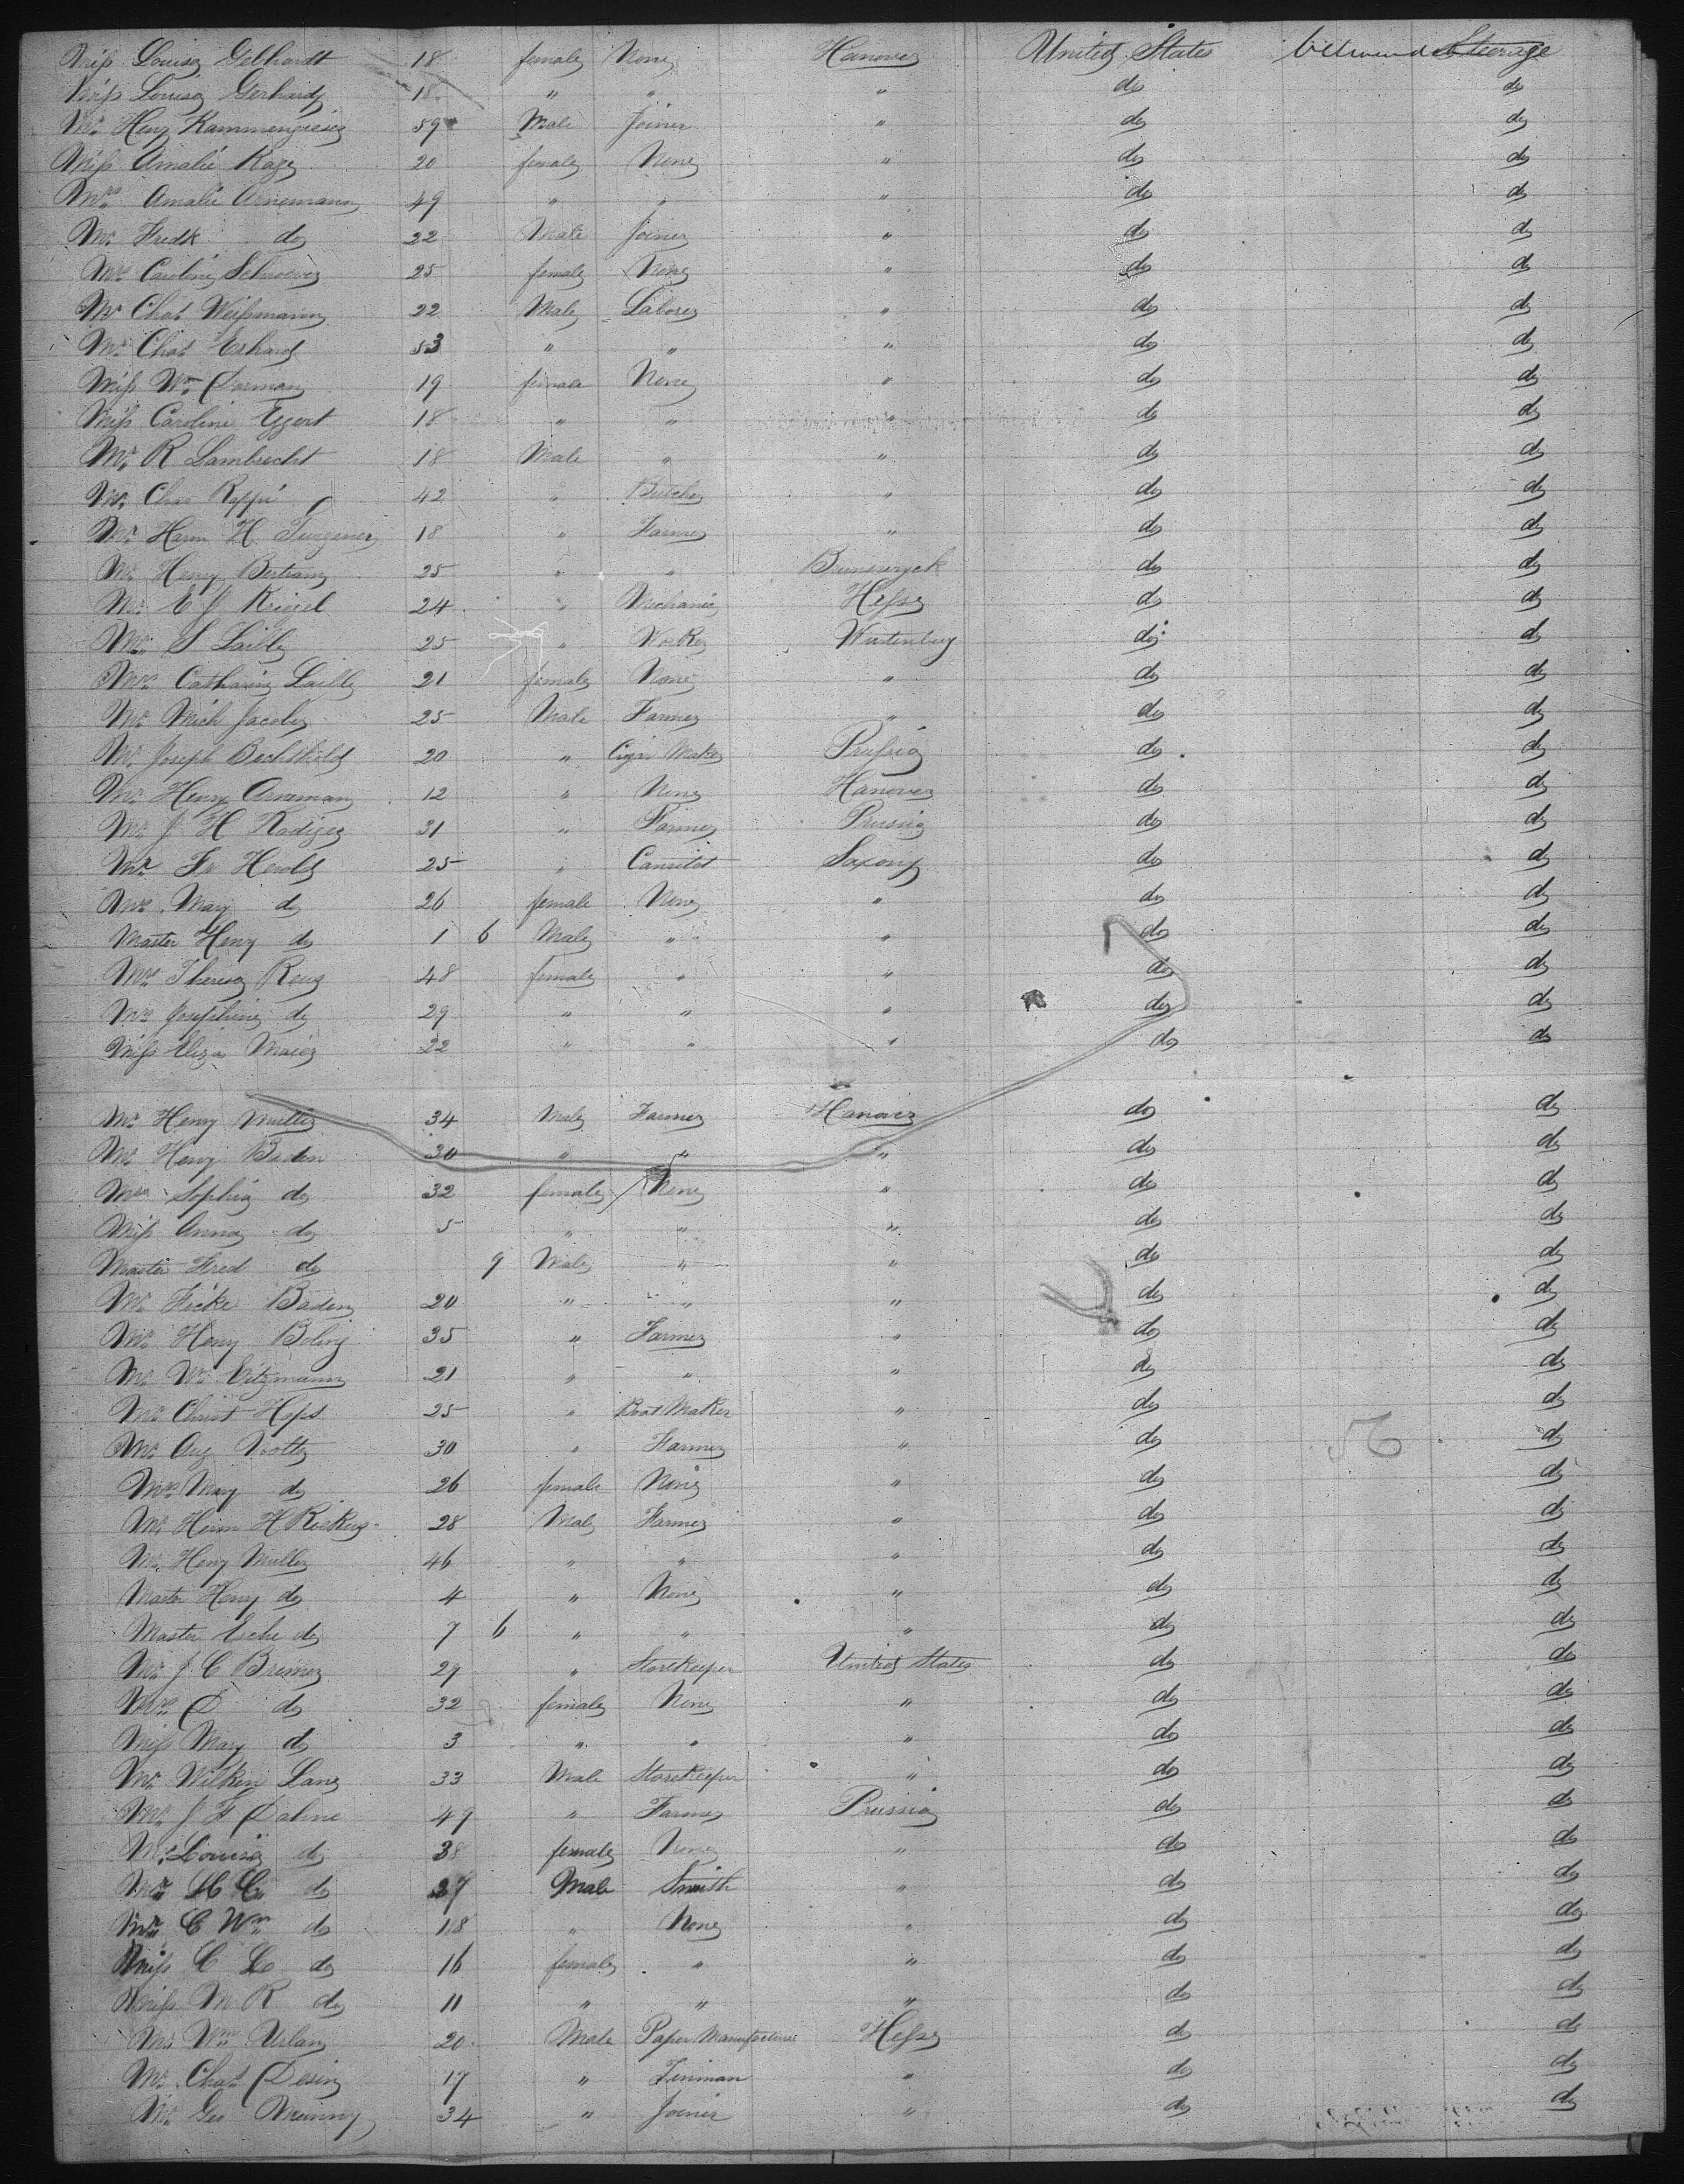 Miss Louise Gebhardt 18 female None Hanover United States Steerage
Miss Louise Gerhardy 18 " " " do do
Mr. Heny Kammengieser 59 Male Joiner " do do
Miss Amalie Kage 20 female None " do do
Mrs. Amalie Arnemann 49 " " " do do
Mr. Fredk do 22 Male Joiner " do do
Mrs Caroline Schroever 25 female None " do do
Mr Chas Weissmann 22 Male Laborer " do do
Mr. Chas Erhard 53 " " " do do
Miss Wm Dorman 19 female None " do do
Miss Caroline Eggert 18 " " " do do
Mr. R Lambrecht 18 Male " " do do
Mr. Chas Reppi 42 " Butcher " do do
Mr. Harm H. Jurgener 18 " Farmer " do do
Mr. Henry Bertram 25 " " Brunswyck do do
Mr. E J Kriegel 24 " Mechanic Hesse do do
Mr. S Laible 25 " Worker Wurtenburg do do
Mrs. Catharine Laible 21 female None " do do
Mr. Mich Jacoby 25 Male Farmer " do do
Mr. Joseph Bechthold 20 " Cigar Maker Prussia do do
Mr. Henry Arneman 12 " None Hanover do do
Mr. J H Radiger 31 " Farmer Prussia do do
Mr. Fr Herold 25 " Saxony do do
Mrs. May do 26 female None " do do
Master Heny do 1 6 Male " " do do
Mrs. Therese Reug 48 female " " do do
Mrs Josephine do 29 " " " do do
Miss Eliza Maier 22 " " " do do
Mr. Henry Muller 34 Male Farmer Hanover do do
Mr. Heny Baden 30 " " " do do
Mrs Sophia do 32 female None " do do
Miss Anna do 5 " " " do do
Master Fred do 9 Male " " do do
Mr. Ficke Baden 20 " " " do do
Mr. Heny Boling 35 " Farmer " do do
Mr. Wm Eitzmann 21 " " " do do
Mr. Christ Hops 25 " Boot Maker " do do
Mr. Aug Nolte 30 " Farmer " do do
Mrs. May do 26 female None " do do
Mr. Herm H Rickus 28 Male Farmer " do do
Mr. Heny Muller 46 " " " do do
Master Heny do 4 " None " do do
Master Esche do 7 6 " " " do do
Mr. J C Bremer 29 " Storekeeper United States do do
Mrs. D do 32 female None " do do
Miss Mary do 3 " " " do do
Mr. Wilken Lang 33 Male Storekeeper " do do
Mr. J F Dalme 49 " Farmer Prussia do do
Mrs. Louisa do 38 female None " do do
Mr. H C do 27 Male Smith " do do
Mr. C Wm do 18 " None " do do
Miss C L do 16 female " " do do
Miss M R do 11 " " " do do
Mr. Wm Urlan 20 Male Paper Manufacturer Hesse do do
Mr. Chas Desin 17 " Tinman " do do
Mr. Geo Nrunny 34 " Joiner " do do